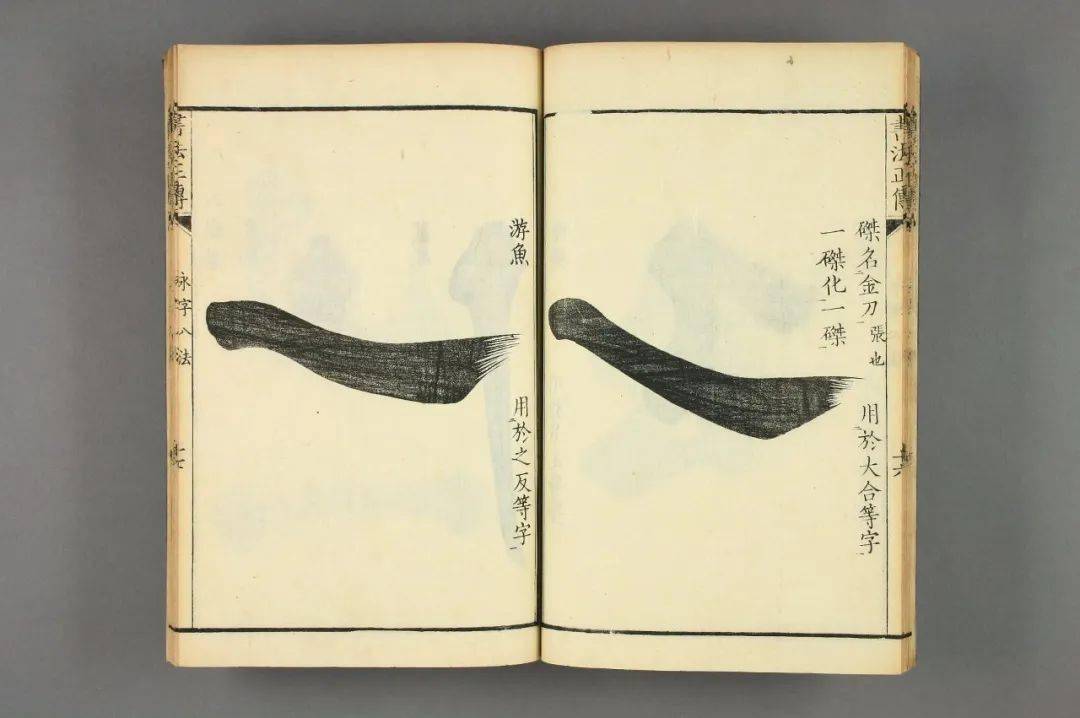 書法正傳
十六
磔名金刀張也　用於大合等字
一磔化一磔
游魚　用於之反等字
書法正傳
永字八法
十七